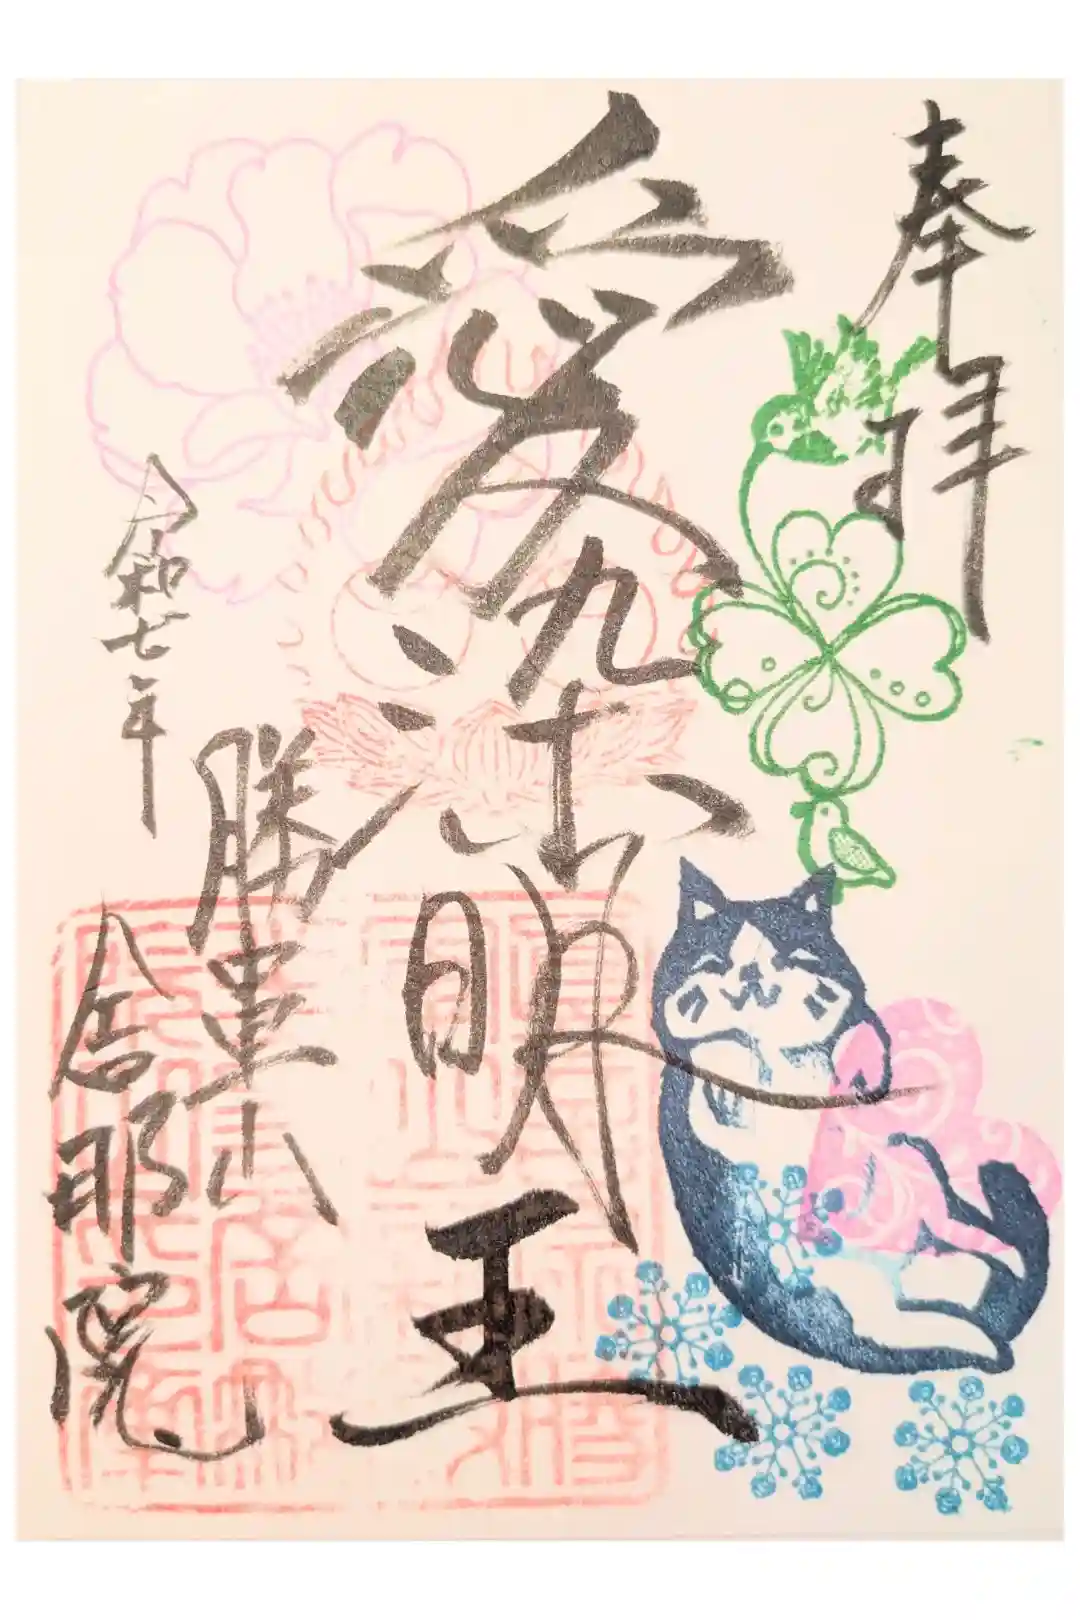 奉拝
愛染明王
令和七年
勝軍山
舎那院